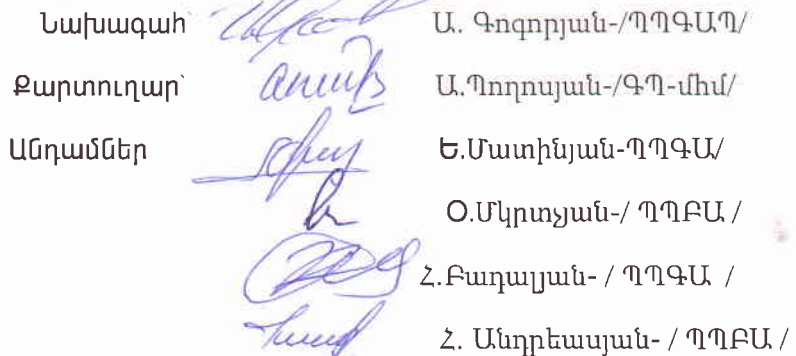 Նախագահ Ա. Գոգորյան-/ՊՊԳԱՊ/
Քարտուղար՝ Ա.Պողոսյան-/ԳՊ-մհմ/
Անդամներ Ե.Մատինյան-ՊՊԳԱ/
Օ.Մկրտչյան-/ ՊՊԲԱ /
Հ.Բաղալյան- / ՊՊԳԱ /
Հ. Անդրեասյան- / ՊՊԲԱ /